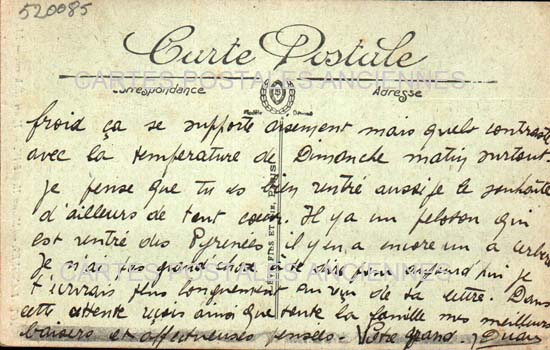 520085
Carte Postale
CARTES POSTALES ANCIENNES
Correspondance
Adresse
froid ça se supporte aisement mais quels contraste
avec la temperature de Dimanche matin surtout.
je pense que tu es bien rentré aussi je le souhaite
d'ailleurs de tout cœur. Il y a un peloton qui
est rentré des Pyrenées, il y en a encore un a
Je n'ai pas grand chose a te dire pour aujourd'hui je
CARTES POSTALES ANCIENNES
t'écrirais plus longuement au reçu de ta lettre. Dans
cette attente reçois ainsi que toute la famille mes meilleurs
baisers et affectueuses pensées. Votre grand